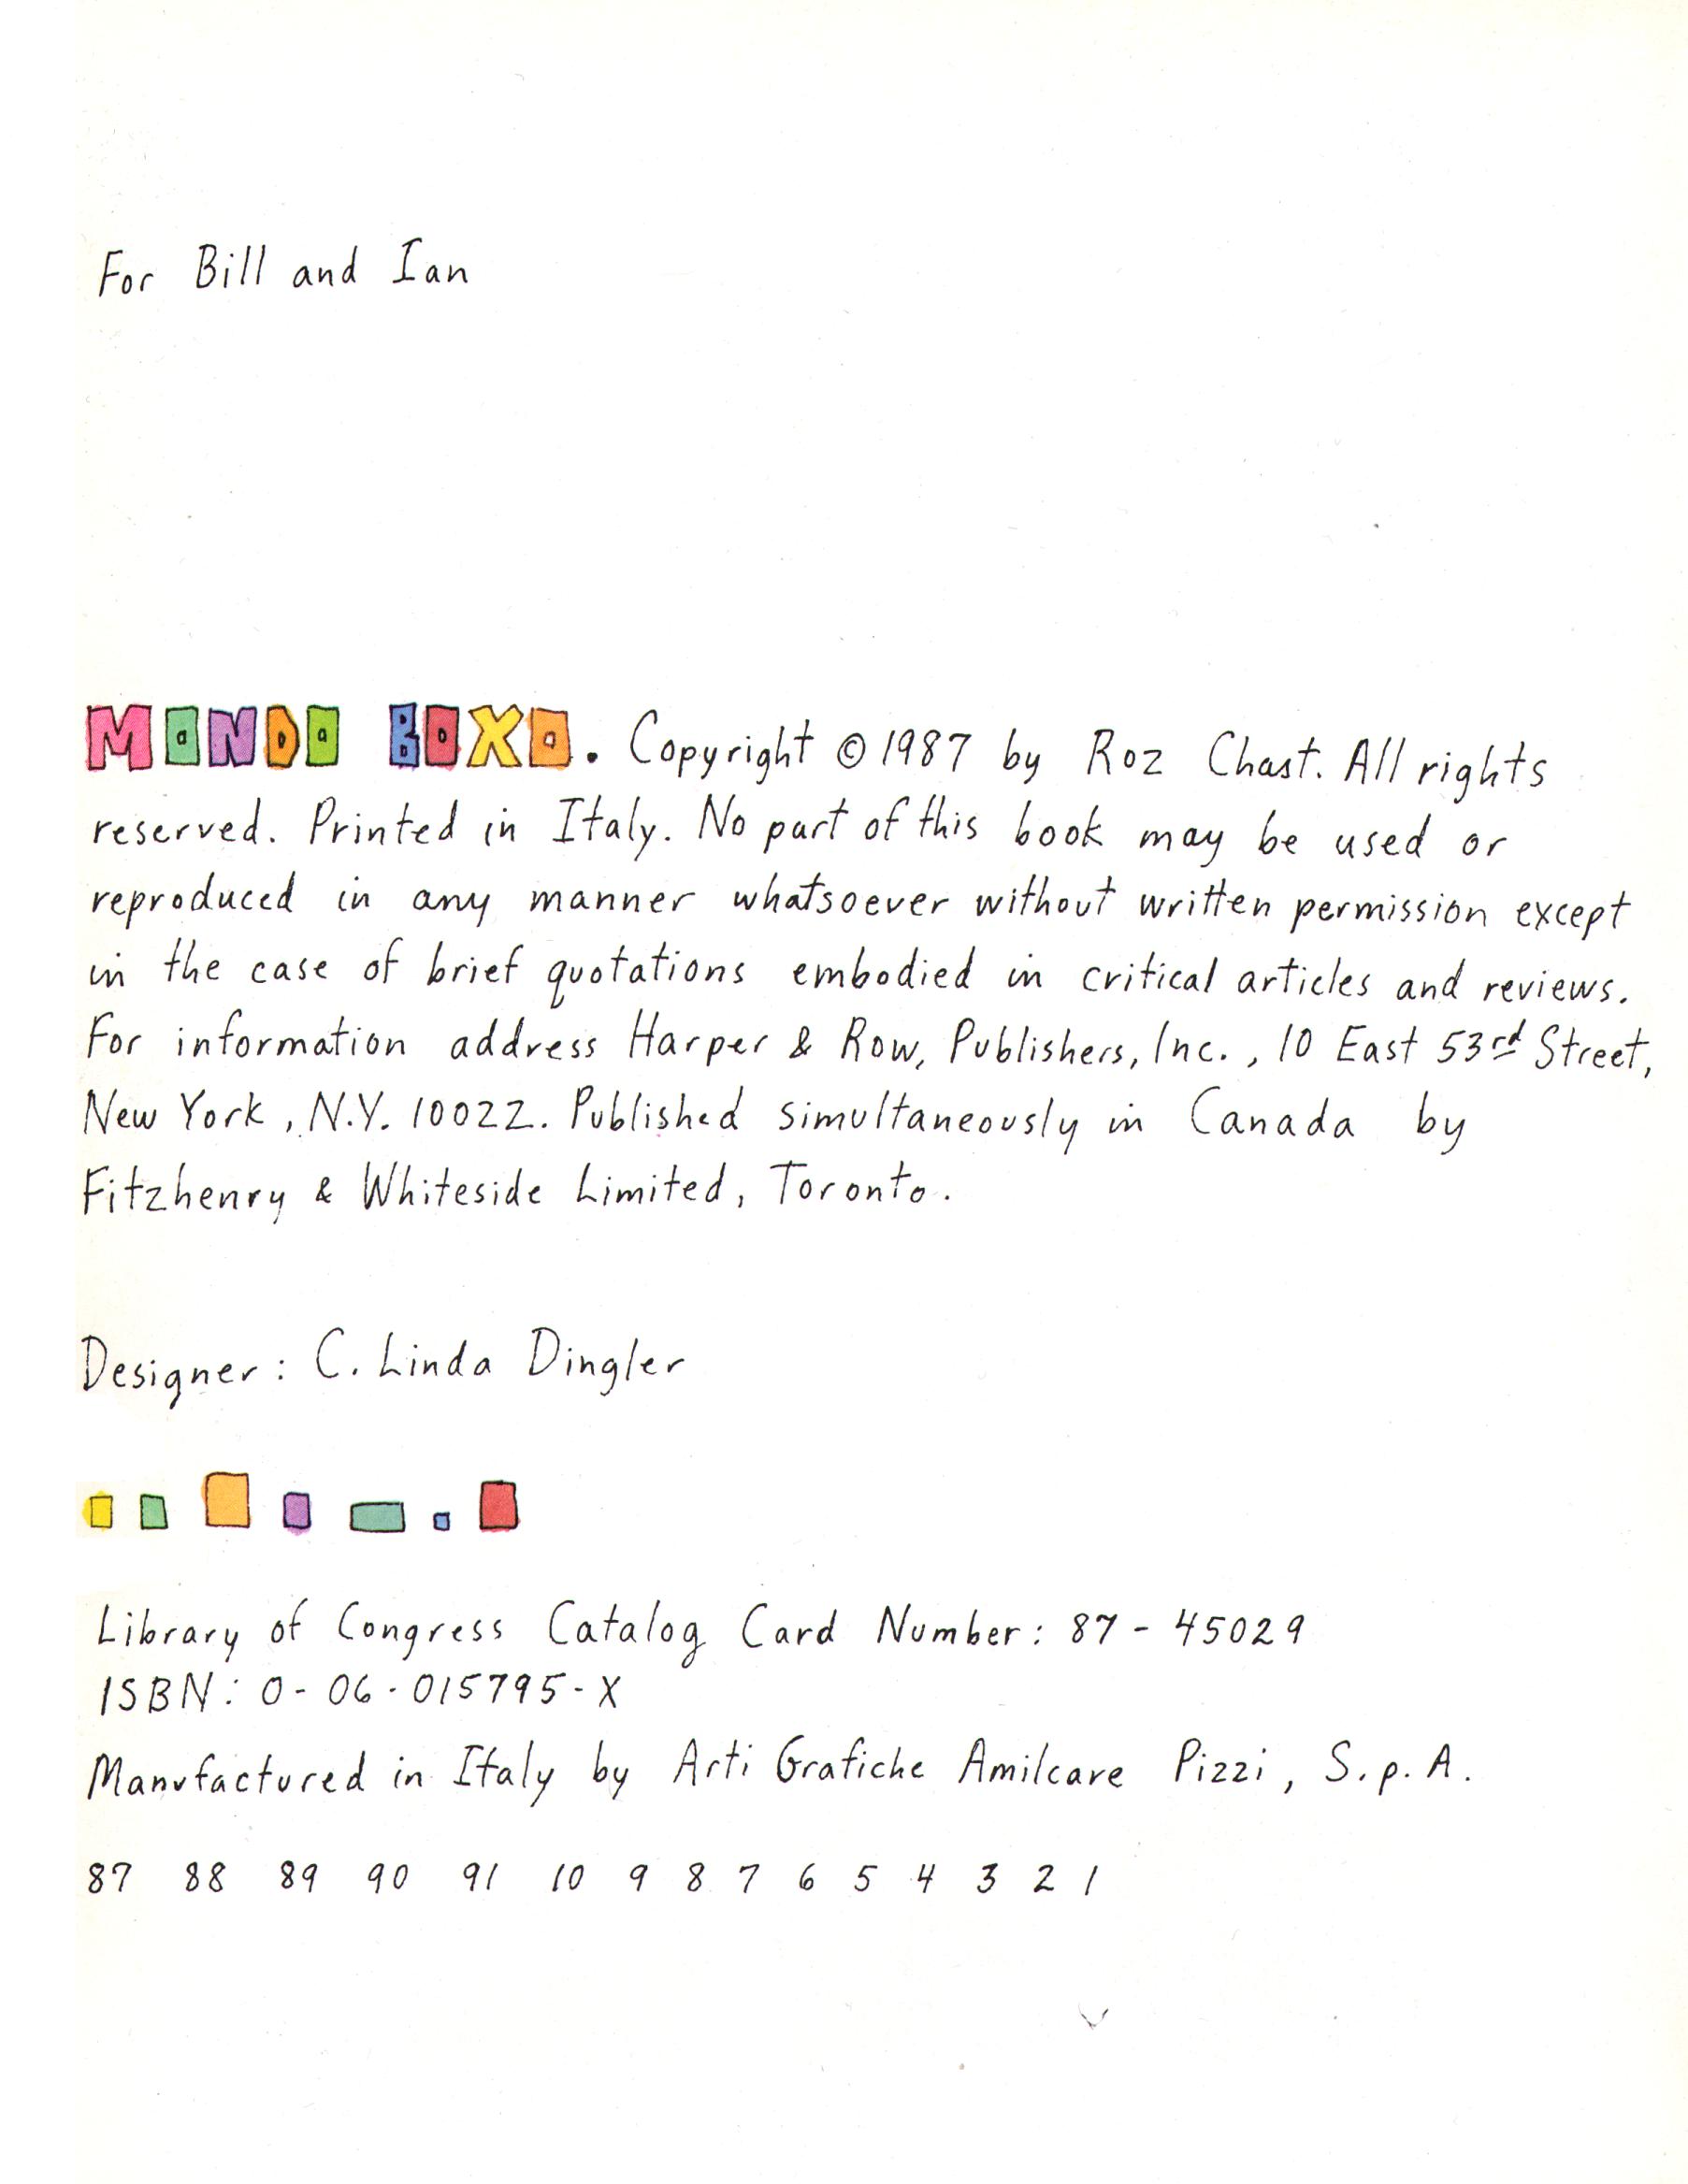 For Bill and Ian
MONDO BOXO. Copyright © 1987 by Roz Chast. All rights
reserved. Printed in Italy. No part of this book may be used or
reproduced in any manner whatsoever without written permission except
in the case of brief quotations embodied in critical articles and reviews.
For information address Harper & Row, Publishers, Inc., 10 East 53rd Street,
New York, N.Y. 10022. Published simultaneously in Canada by
Fitzhenry & Whiteside Limited, Toronto.
Designer: C. Linda Dingler
Library of Congress Catalog Card Number: 87-45029
ISBN: 0-06-015795-X
Manufactured in Italy by Arti Grafiche Amilcare Pizzi, S.p.A.
87 88 89 90 91 10 9 8 7 6 5 4 3 2 1